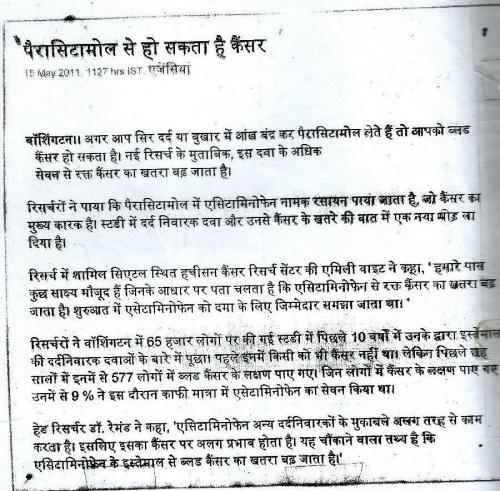 पैरासिटामोल से हो सकता है कैंसर
15 May 2011, 1127 hrs IST, एजेंसियां
वॉशिंगटन।। अगर आप सिर दर्द या बुखार में आंख बंद कर पैरासिटामोल लेते हैं तो आपको ब्लड
कैंसर हो सकता है। नई रिसर्च के मुताबिक, इस दवा के अधिक
सेवन से रक्त कैंसर का खतरा बढ़ जाता है।
रिसर्चरों ने पाया कि पैरासिटामोल में एसिटामिनोफेन नामक रसायन पाया जाता है, जो कैंसर का
मुख्य कारक है। स्टडी में दर्द निवारक दवा और उनसे कैंसर के खतरे की बात में एक नया मोड़ ला
दिया है।
रिसर्च में शामिल सिएटल स्थित हचीसन कैंसर रिसर्च सेंटर की एमिली वाइट ने कहा, ' हमारे पास
कुछ साक्ष्य मौजूद हैं जिनके आधार पर पता चलता है कि एसिटामिनोफेन से रक्त कैंसर का खतरा बढ़
जाता है। शुरुआत में एसेटामिनोफेन को दमा के लिए जिम्मेदार समझा जाता था। '
रिसर्चरों ने वॉशिंगटन में 65 हजार लोगों पर की गई स्टडी में पिछले 10 वर्षों में उनके द्वारा इस्तेमाल
की दर्दनिवारक दवाओं के बारे में पूछा। पहले इनमें किसी को भी कैंसर नहीं था। लेकिन पिछले छह
सालों में इनमें से 577 लोगों में ब्लड कैंसर के लक्षण पाए गए। जिन लोगों में कैंसर के लक्षण पाए गए
उनमें से 9 % ने इस दौरान काफी मात्रा में एसेटामिनोफेन का सेवन किया था।
हेड रिसर्चर डॉ. रेमंड ने कहा, 'एसिटामिनोफेन अन्य दर्दनिवारकों के मुकाबले अलग तरह से काम
करता है। इसलिए इसका कैंसर पर अलग प्रभाव होता है। यह चौंकाने वाला तथ्य है कि
एसिटामिनोफेन के इस्तेमाल से ब्लड कैंसर का खतरा बढ़ जाता है।'